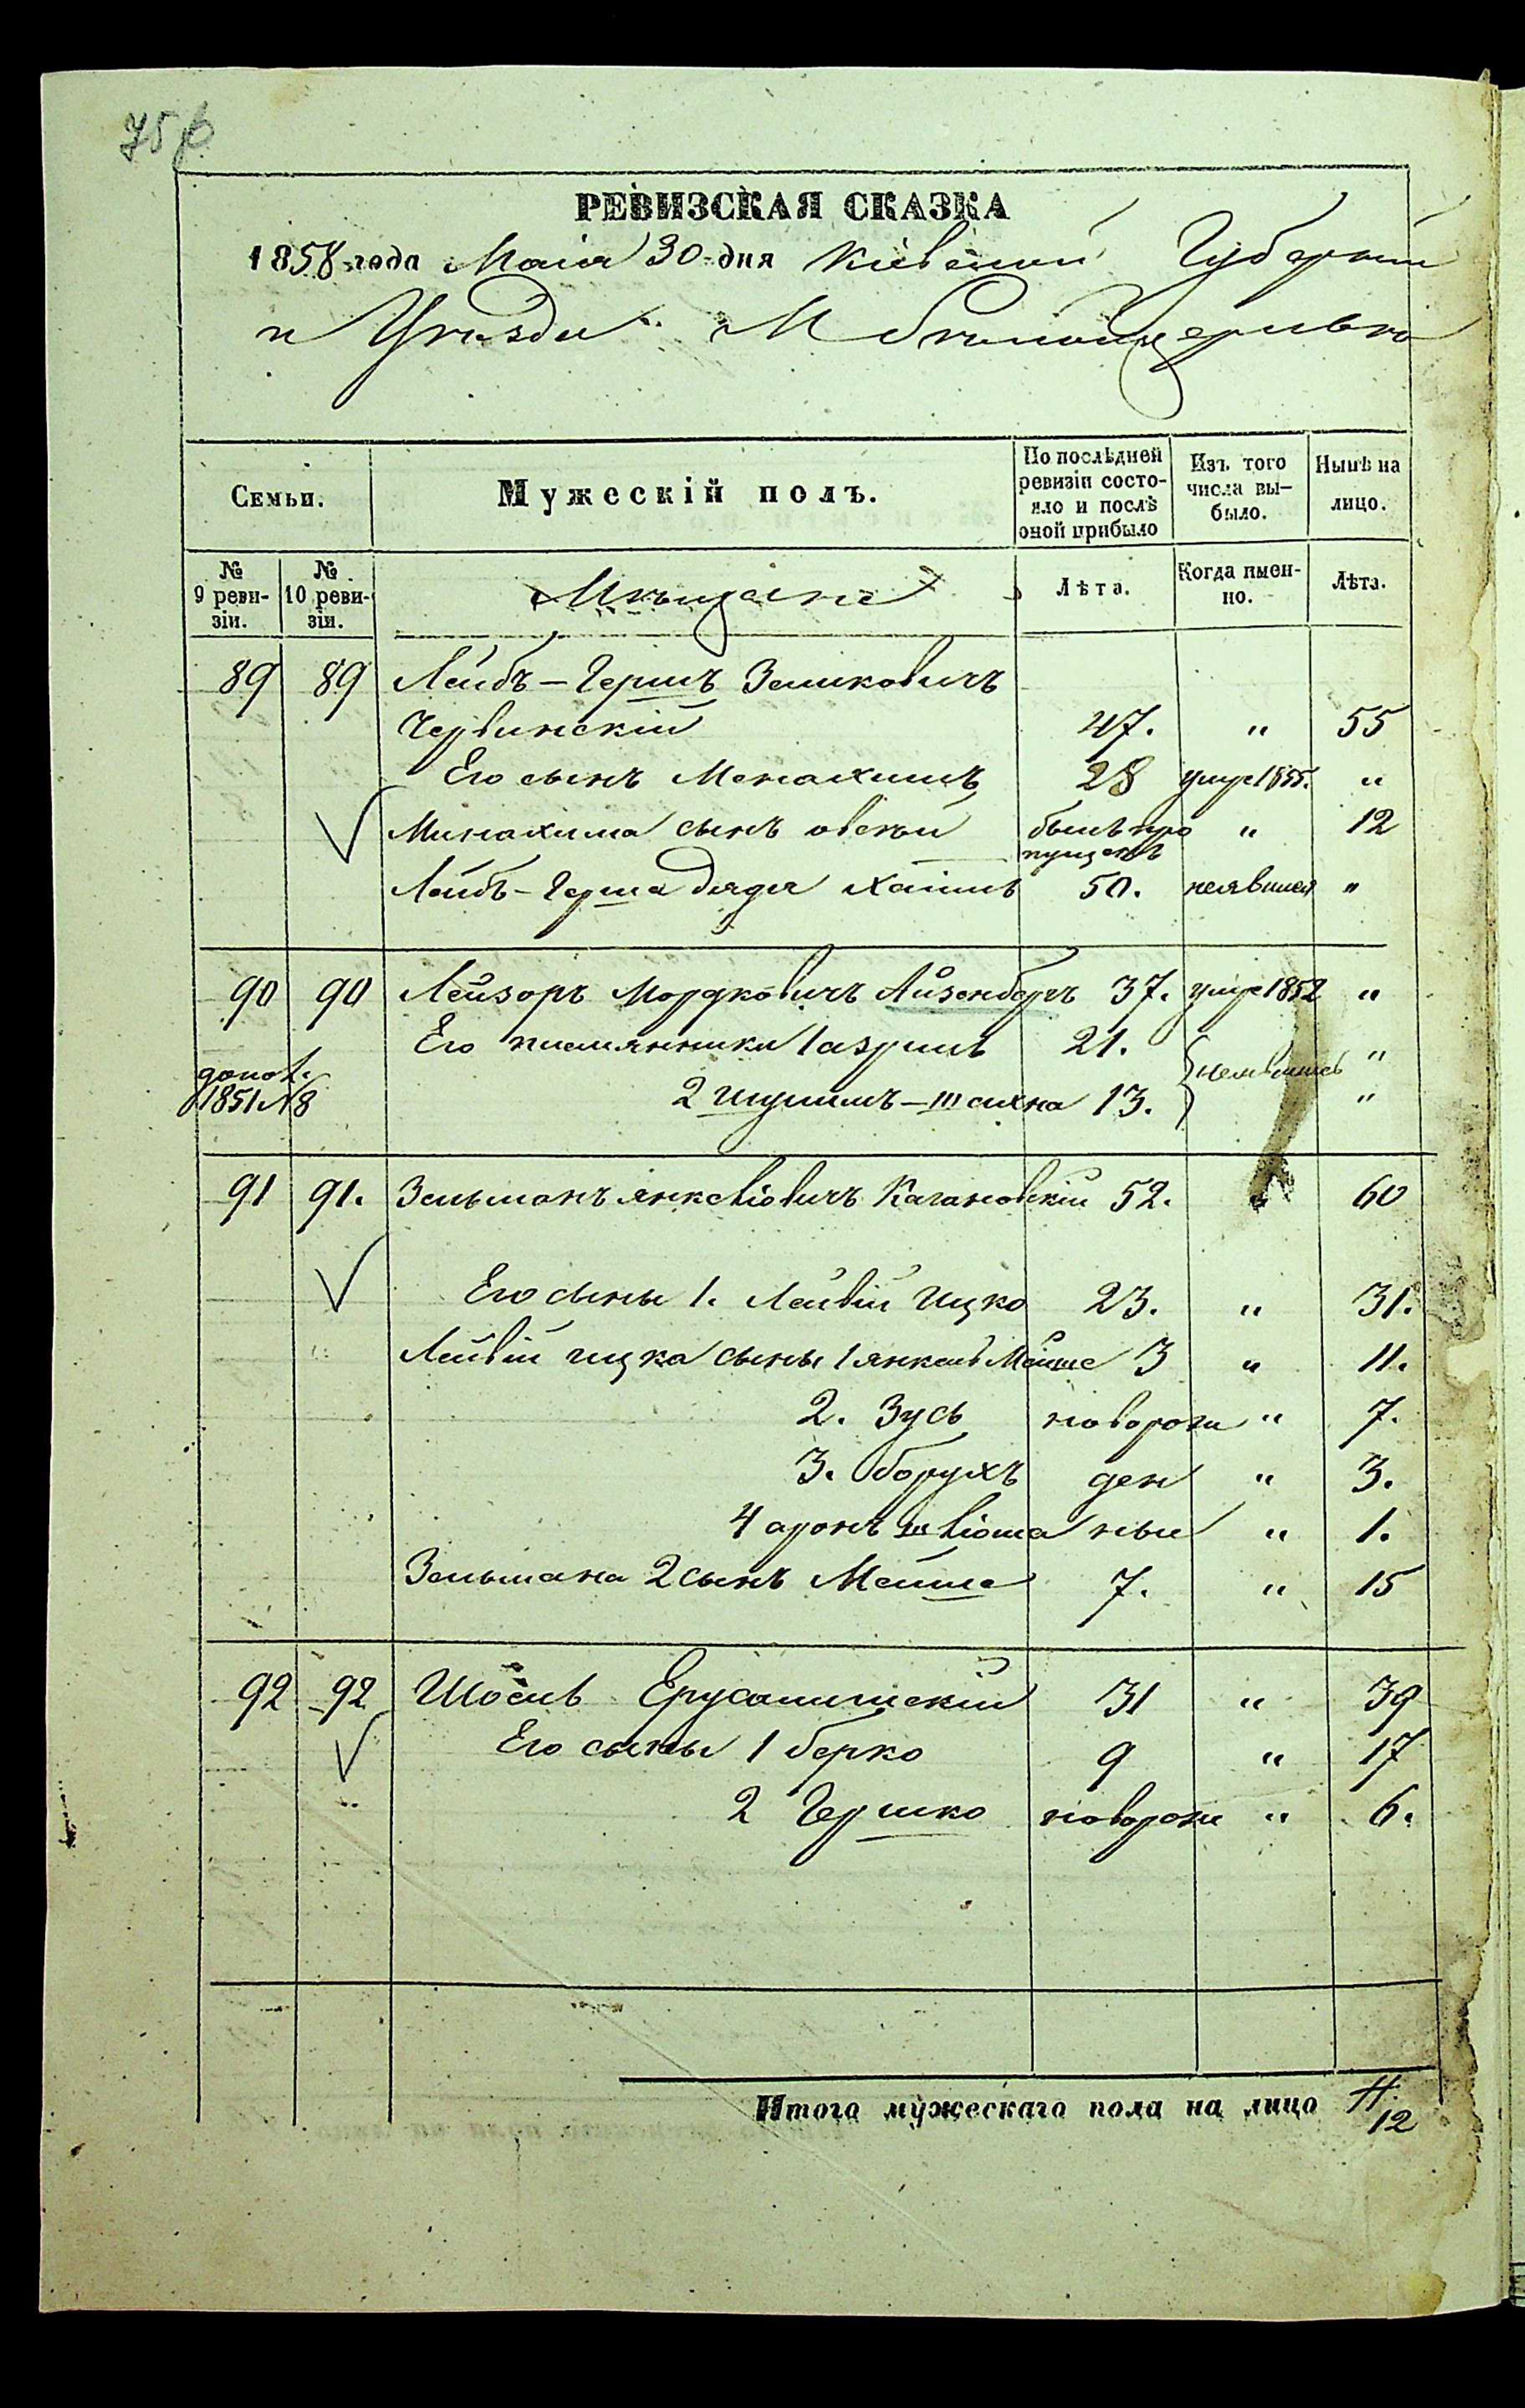 75
РЕВИЗСКАЯ СКАЗКА
1858 года Маія 30 дня Кіевской Губерніи
и Уѣзда М
Семьи. Мужескій полъ. По послѣдней ревизіи состояло и послѣ оной прибыло Изъ того числа выбыло. Нынѣ на лицо.
№ 9 ревизіи. № 10 ревизіи. Мѣщане Лѣта. Когда именно. Лѣта.
89 89 Лейбъ-Гершъ Зеликовичъ
Червинскій 47. " 55
Его сынъ Менахимъ 28 умре 1855. "
Минахима сынъ овсѣй былъ пропущенъ " 12
Лейбъ-Герша дядя Хаимъ 50. неявился "
90 90 Лейзоръ Мордковичъ Айзенбергъ 37. умре 1852 "
Его племянники 1 азриль 21. неявились "
допол. 1851 №8 2 Шулимъ-шахна 13. "
91 91. Зельманъ янкелiовичъ Кагановскій 52. " 60
Его сыны 1. Лейвій Ицко 23. " 31.
Лейвій ицка сыны 1 янкель Мойше 3 " 11.
2. Зусь новорож " 7.
3. борухъ ден " 3.
4 аронъ шліома ные " 1.
Зельмана 2 сынъ Мойше 7. " 15
92 92 Шоель Ерусалимскій 31 " 39
Его сыны 1 берко 9 " 17
2 Гершко новорож " 6.
Итого мужескаго пола на лицо 11.
12